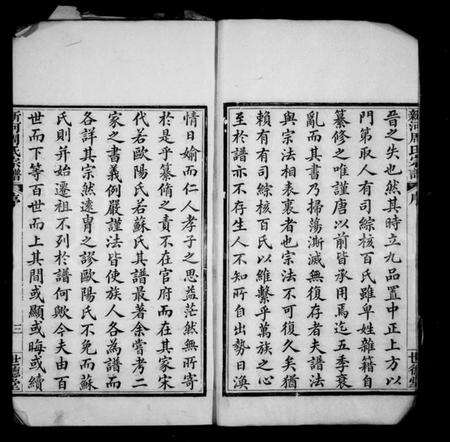 新河周氏宗譜
序
世德堂
昔之失也然其時立九品置中正上方以
門第取人有司綜核百氏雖卑姓雜籍自
纂修之唯謹唐以前皆承用焉迄五季衰
亂而其書乃掃蕩澌滅無復存者夫譜法
與宗法相表裏者也宗法不可復久矣猶
賴有有司綜核百氏以維繫乎萬族之心
至於譜亦不存生人不知所自出勢日渙
情日媮而仁人孝子之思益茫然無所寄
於是乎纂脩之責不在官府而在其家宋
代若歐陽氏若蘇氏其譜最著余嘗考二
家之書義例嚴謹法皆使族人各為譜而
各詳其宗然遠胄之謬歐陽氏不免而蘇
氏則并始遷祖不列於譜何歟今夫由百
世而下等百世而上其間或顯或晦或續
新河周氏宗譜
序
三
世德堂